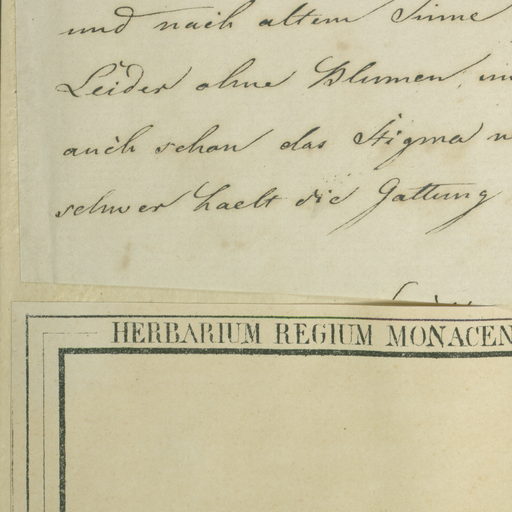 und nach altem Sinne
Leider ohne Blumen,
auch schon das Stigma
schwer haelt die Gattung
HERBARIUM REGIUM MONACEN